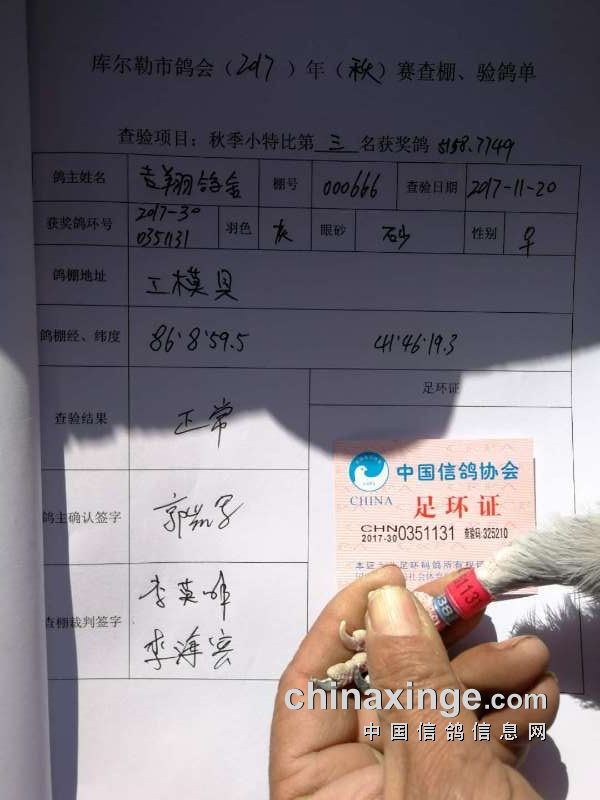 库尔勒市鸽会（2017）年（秋）赛查棚、验鸽单
查验项目：秋季小特比第 三 名获奖鸽 5158.7749
鸽主姓名 吉翔鸽舍 棚号 000666 查验日期 2017-11-20
获奖鸽环号 2017-30 0351131 羽色 灰 眼砂 砂 性别 ♀
鸽棚地址 工模具
鸽棚经、纬度 86°8'59.5 41°46'19.3
足环证
查验结果 正常
中国信鸽协会
CHINA 足环证
CHN
2017-30 0351131 查验码:325210
鸽主确认签字
查棚裁判签字 李英
李海宾
chinaxinge.com
中国信鸽信息网